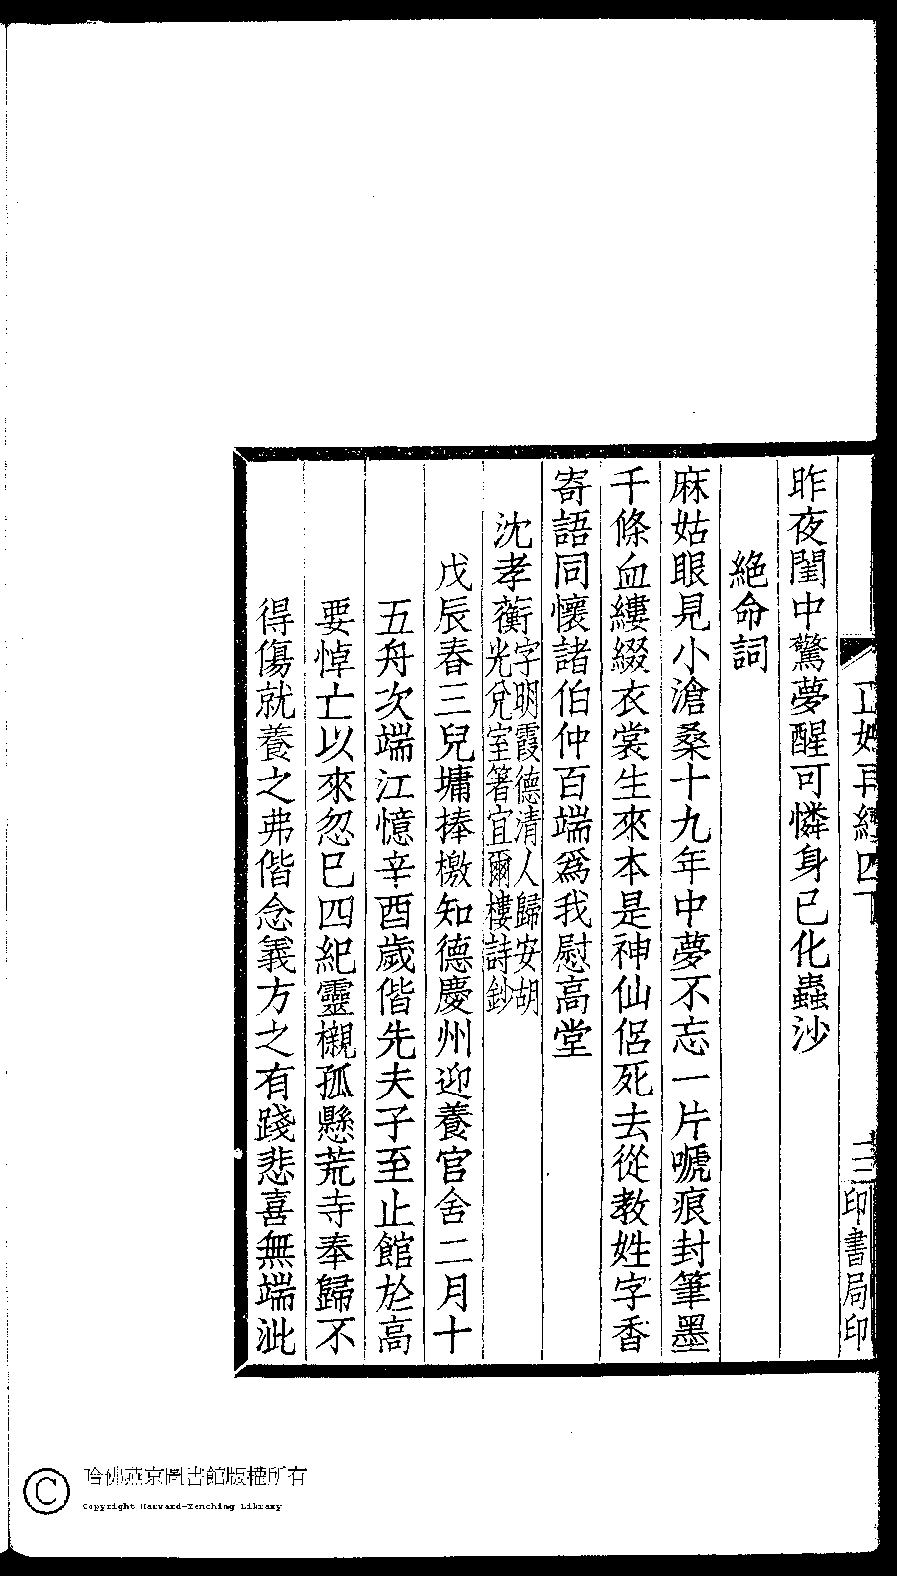 昨夜閨中驚夢醒可憐身已化蟲沙
絕命詞
麻姑眼見小滄桑十九年中夢不忘一片嗁痕封筆墨
千條血縷綴衣裳生來本是神仙侶死去從教姓字香
寄語同懷諸伯仲百端爲我慰高堂
沈孝蘅字明霞德清人歸安胡
光兌室著宜爾樓詩鈔
戊辰春三兒墉捧檄知德慶州迎養官舍二月十
五舟次端江憶辛酉歲偕先夫子至止館於高
要悼亡以來忽巳四紀靈櫬孤懸荒寺奉歸不
得傷就養之弗偕念義方之有踐悲喜無端泚
印書局印
哈佛燕京圖書館版權所有
Copyright Harvard-Yenching Library